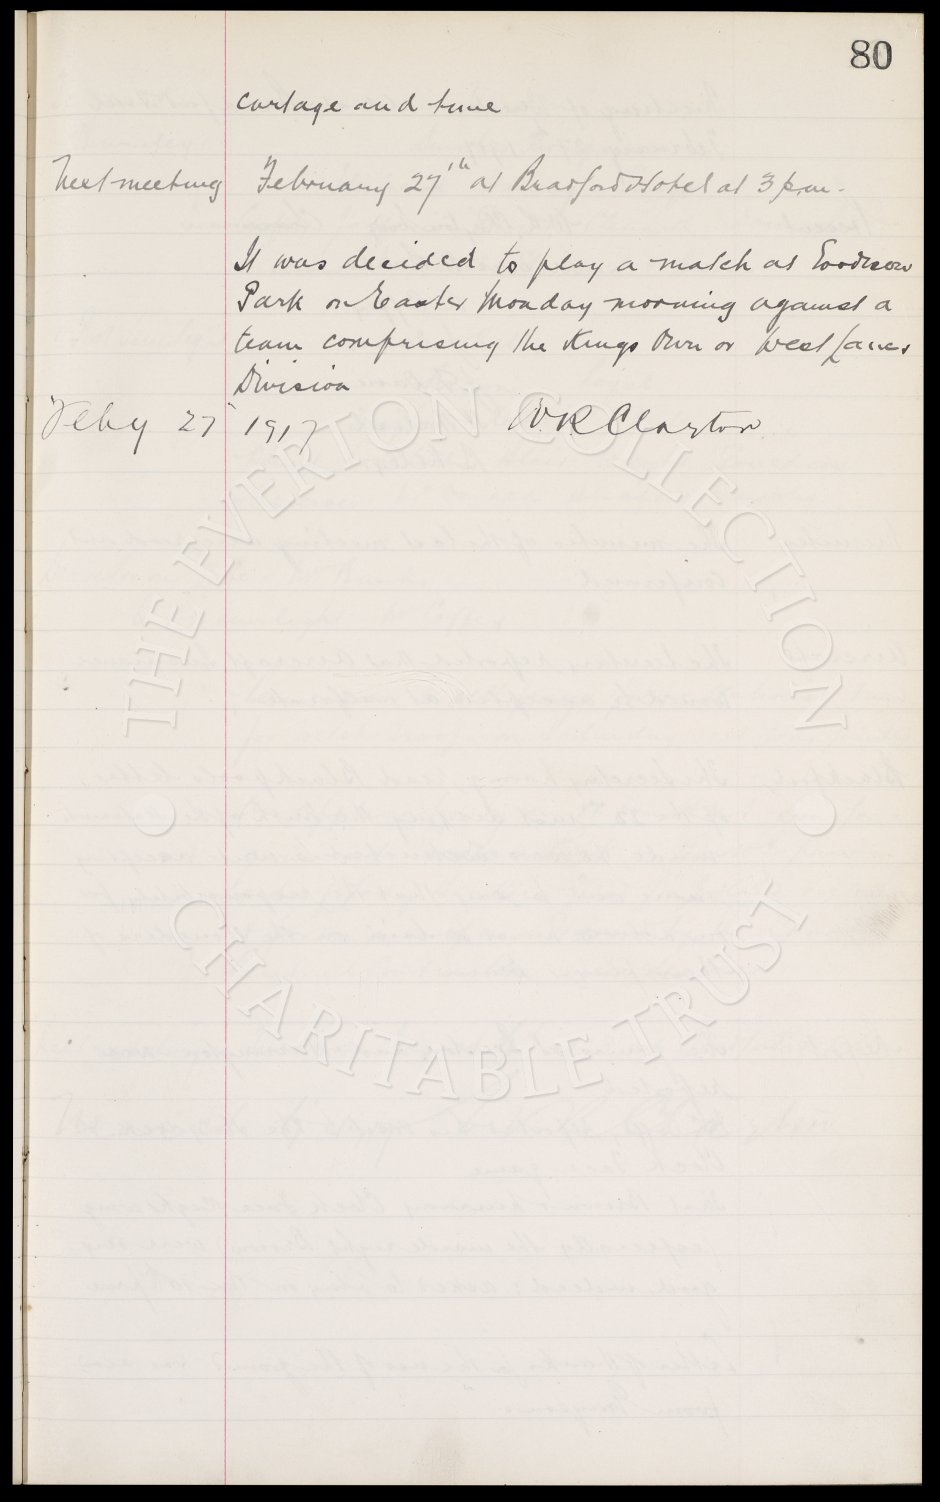 80
cartage and time
Next meeting February 27th at Bradford Hotel at 3 p.m.
It was decided to play a match at Goodison
Park on Easter Monday morning against a
team comprising the Kings Own or West Lancs
Division
Feby 27 1917 W R Clayton
THE EVERTON COLLECTION
CHARITABLE TRUST